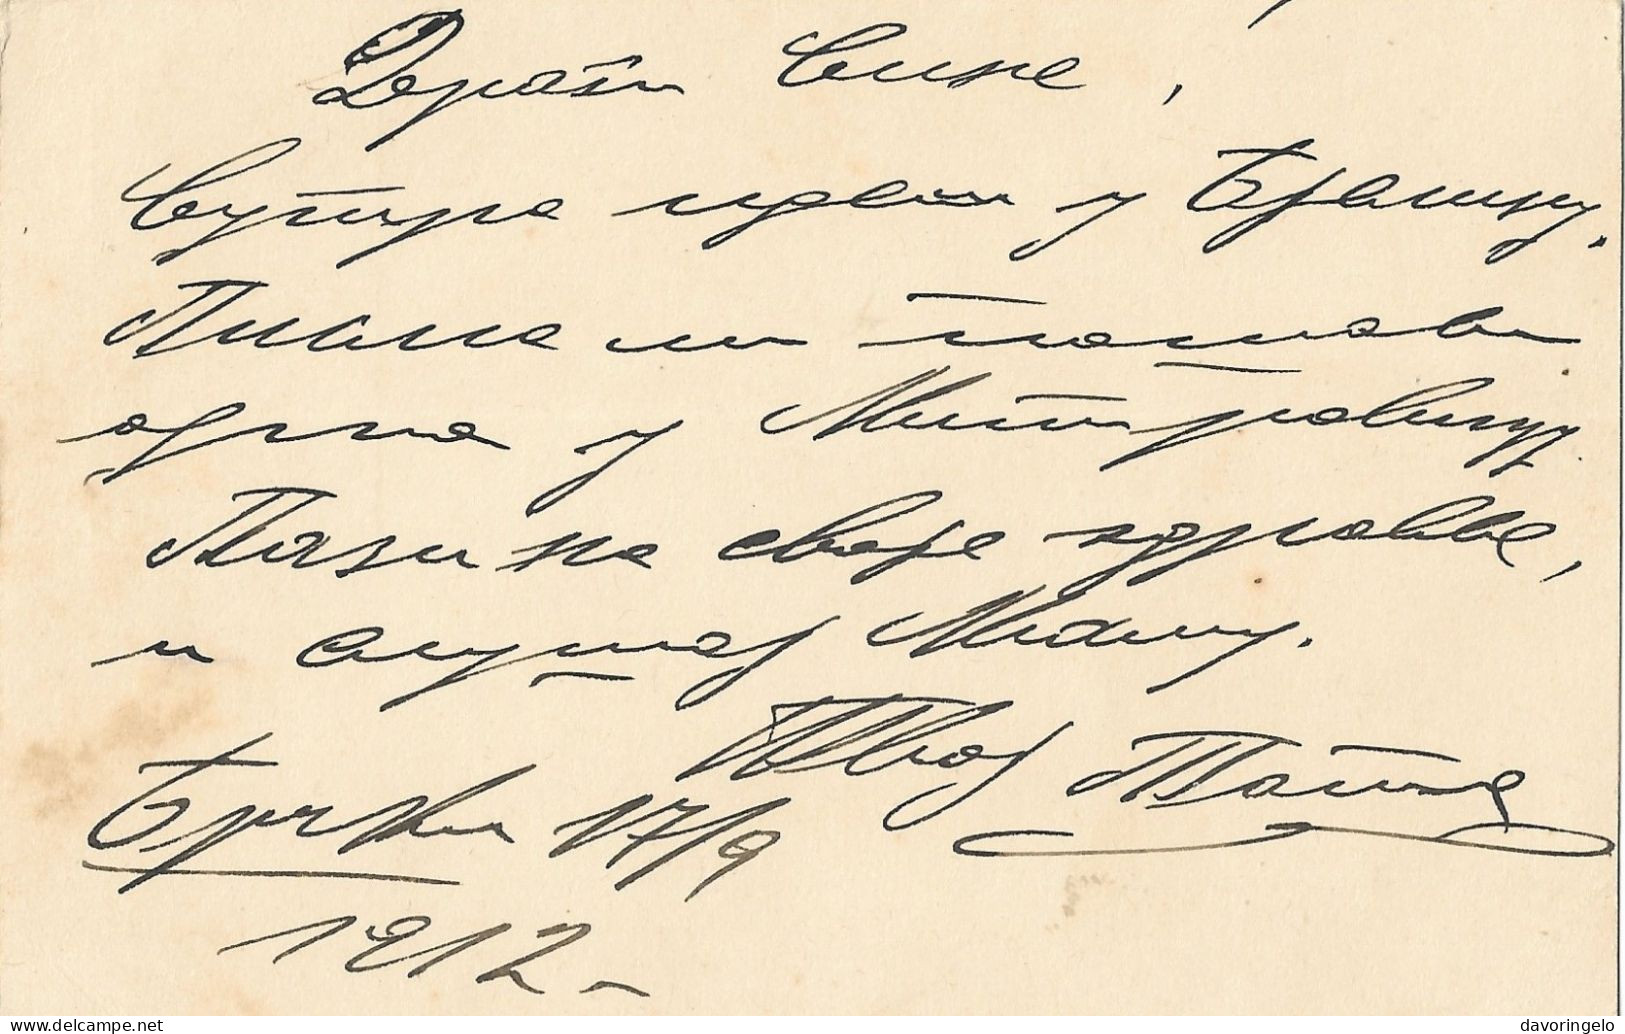 Драги Сине,
Сутра идем у Брашку.
Писма ми пошаљи
одма у Митровицу
Пази на своје здравље,
и слушај Маму.
Твој Тата
Брчко 17/9
1912
davoringelo
www.delcampe.net